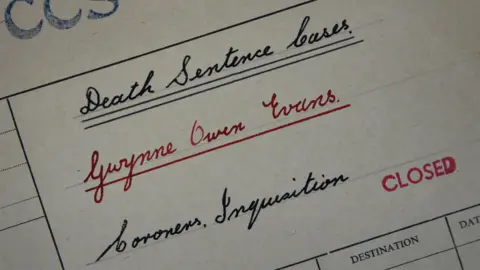 CCS
Death Sentence Cases.
Gwynne Owen Evans.
Coroners. Inquisition
CLOSED
DESTINATION
DAT